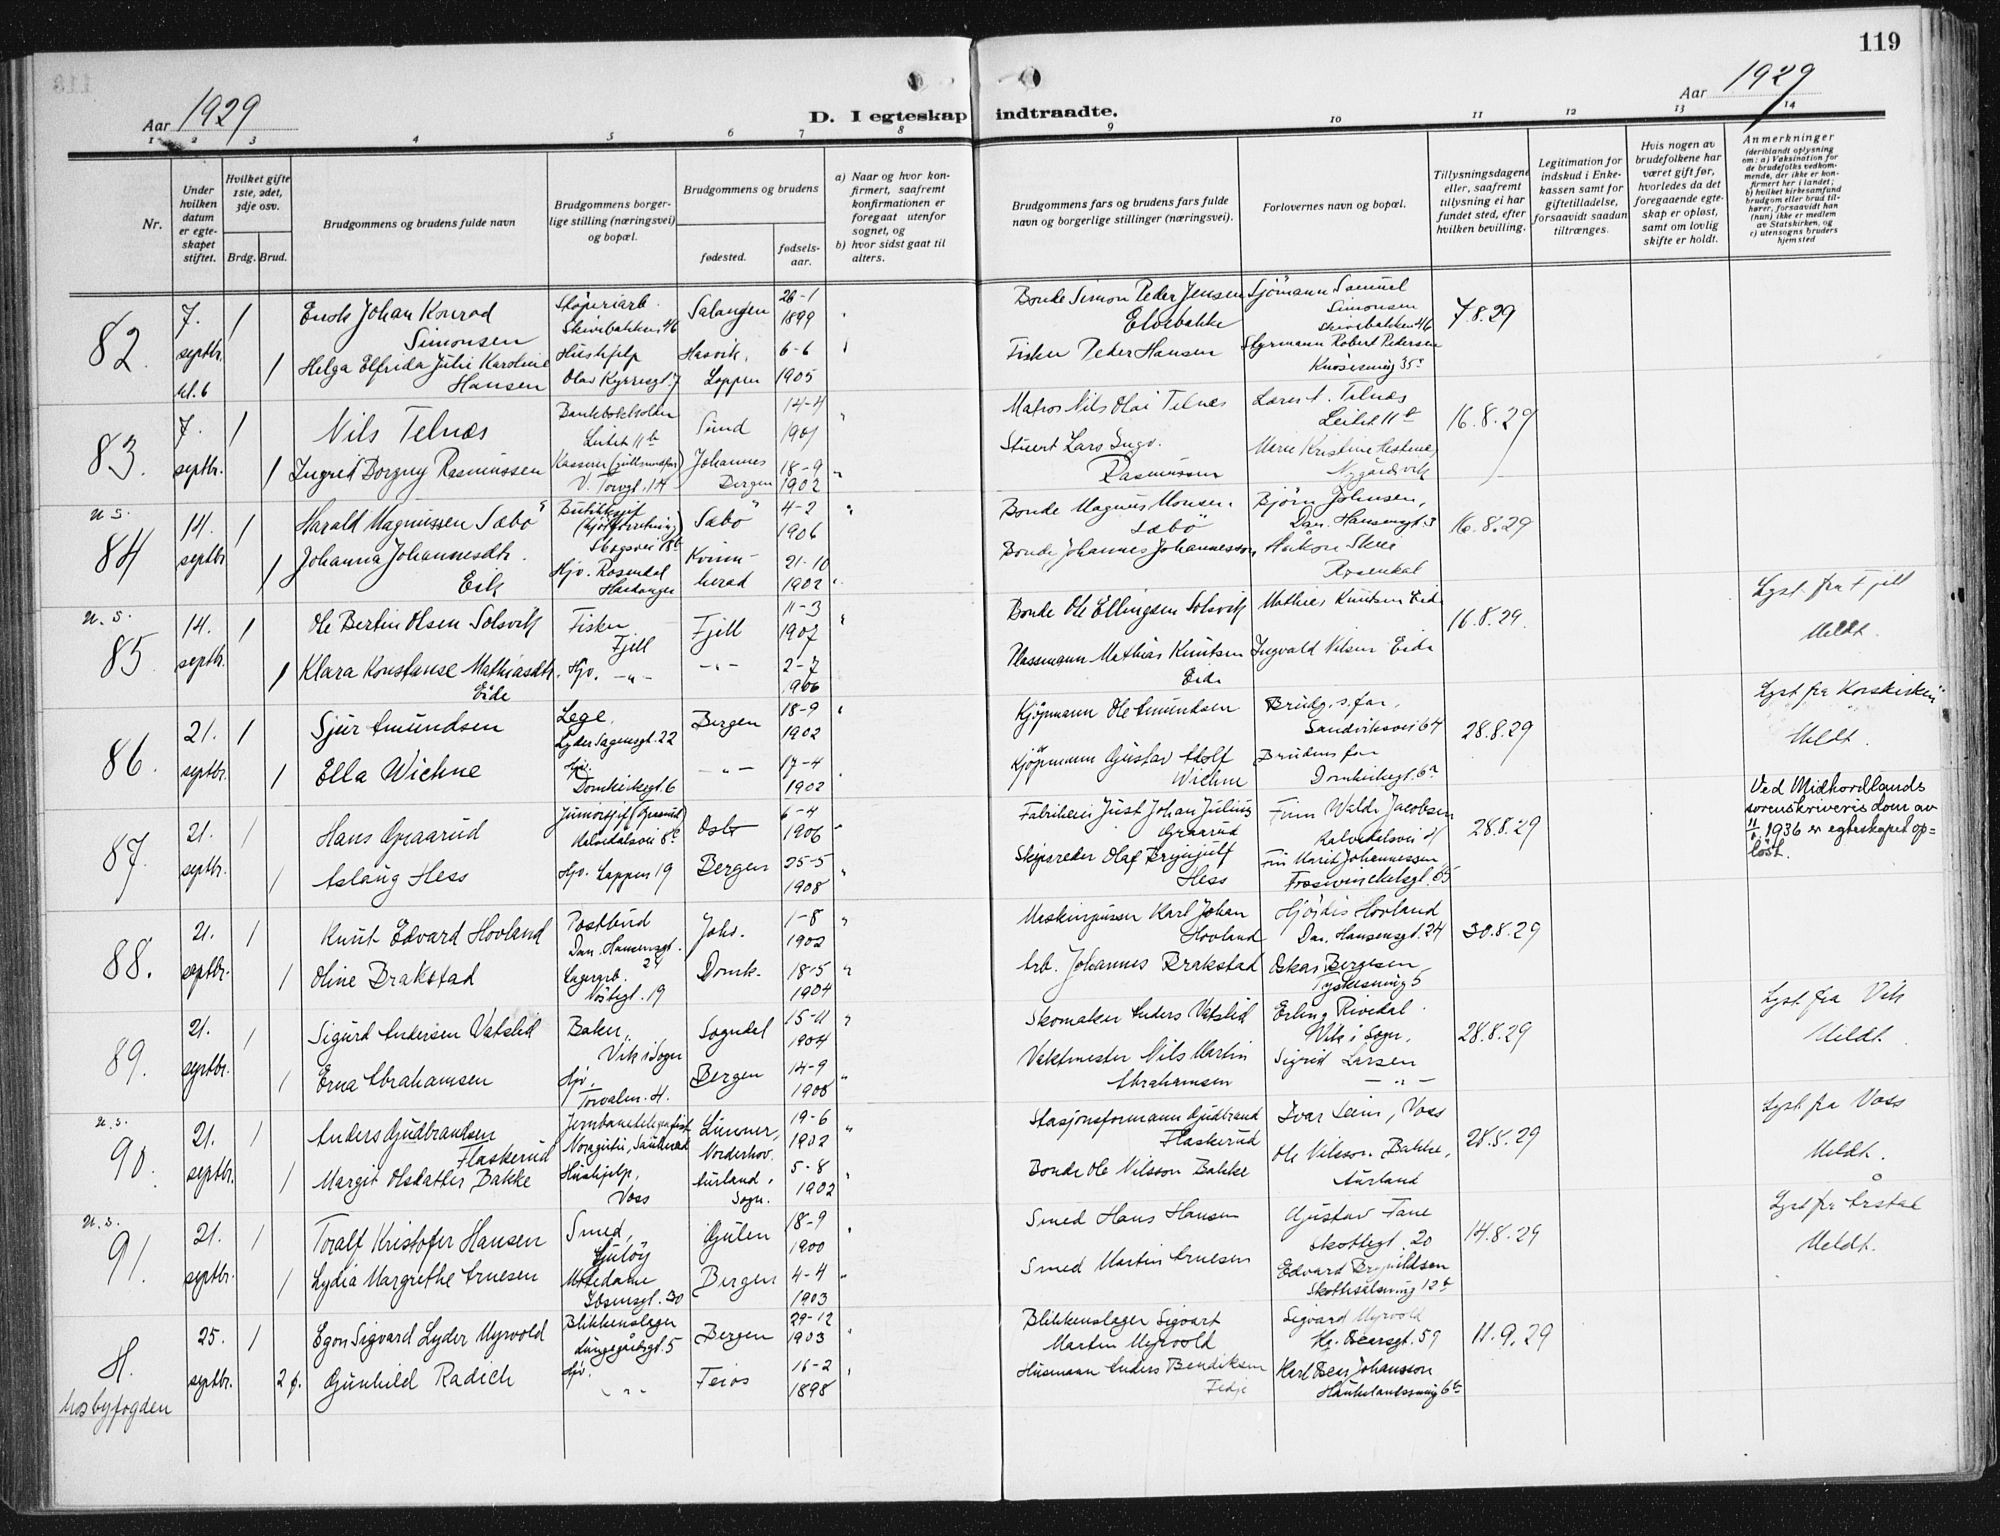 119
Aar 1929
D. I egteskap indtraadte.
Aar 1929
1 2 3 4 5 6 7 8 9 10 11 12 13 14
Nr.
Under hvilken datum er egteskapet stiftet.
Hvilket gifte 1ste, 2det, 3dje osv.
Brdg. Brud.
Brudgommens og brudens fulde navn
Brudgommens borgerlige stilling (næringsvei) og bopæl.
Brudgommens og brudens
fødested.
fødselsaar.
a) Naar og hvor konfirmert, saafremt konfirmationen er foregaat utenfor sognet, og
b) hvor sidst gaat til alters.
Brudgommens fars og brudens fars fulde navn og borgerlige stillinger (næringsvei).
Forlovernes navn og bopæl.
Tillysningsdagene eller, saafremt tillysning ei har fundet sted, efter hvilken bevilling.
Legitimation for indskud i Enkekassen samt for giftetilladelse, forsaavidt saadan tiltrænges.
Hvis nogen av brudefolkene har været gift før, hvorledes da det foregaaende egteskap er opløst, samt om lovlig skifte er holdt.
Anmerkninger
(deriblandt oplysning om: a) Vaksination for de brudefolks vedkommende, der ikke er konfirmert her i landet; b) hvilket kirkesamfund brudgom eller brud tilhører, forsaavidt han (hun) ikke er medlem av Statskirken, og c) utensogns bruders hjemsted
82. 7. septbr. kl. 6
1 Johan Konrad Simonsen Støperiarb. Skivebakken 46 Salangen 26-1 1899 Bonde Simon Peder Jensen Elvebakke Sjömann Samuel Simonsen Skivebakken 46 7.8.29
1 Helga Elfrida Julie Karoline Hansen Hushjelp Olav Kyrresgt. 7 Hasvik, Loppen 6-6 1905 Fisker Peder Hansen Styrmann Robert Pedersen
83. 7. septbr.
1 Nils Telnæs Bankbokholder Leitet 11b Sund 14-4 1901 Matros Nils Olai Telnæs Telnæs Leitet 11b 16.8.29
1 Ingrid Borgny Rasmussen Kasserer V. Torvgt. 14 Johannes Bergen 18-9 1902 Stuert Lars Ingv. Rasmussen Marie Kristine Nygårdsvik
u. s.
84 14. septbr.
1 Harald Magnussen Sæbö Stogsvei 18b Sæbö 4-2 1906 Bonde Magnus Monsen Sæbö Bjørn Johnsen, Dan. Hansensgt. 3 16.8.29
1 Johanna Johannesdtr. Eik Hjv. Rosendal Hardanger Kvinnherad 21-10 1902 Bonde Johannes Johannesson Håkon Skeie Rosendal
u. s.
85 14. septbr.
1 Ole Bertin Olsen Solsvik Fisker Fjell Fjell 11-3 1907 Bonde Ole Ellingsen Solsvik Mathias Knutsen Eide 16.8.29. Lyst fra Fjell
1 Klara Konstanse Mathiasdtr. Eide Hjv. -"- -"- 2-7 1906 Plassmann Mathias Knutsen Eide Ingvald Nilsen Eide Meldt.
86. 21. septbr.
1 Sjur Amundsen Lege, Lyder Sagensgt. 22 Bergen 18-9 1902 Kjöpmann Ole Amundsen Brudg. s. far, Sandviksvei 64 28.8.29 Lyst fra Korskirken
1 Ella Wichne Hjv. Domkirkegt. 6 -"- 17-4 1902 Kjöpmann Gustav Adolf Wichne Brudens far Domkirkegt. 6a Meldt.
87. 21. septbr.
1 Hans Graarud Kalvedalsvei 8c Oslo 6-4 1906 Fabrikeier Just Johan Julius Graarud Finn Waldt Jacobsen Kalvedalsvei 28.8.29
1 Aslaug Hess Hjv. Lappen 19 Bergen 25-5 1908 Skipsreder Olaf Brynjulf Hess Johannessen
Ved Midhordlands sorenskriveris dom av 1936 er egteskapet opløst.
88. 21. septbr.
1 Knut Edvard Hovland Postbud Dan. Hansensgt. 24 Johs. 1-8 1902 Maskinpusser Karl Johan Hovland Hjördis Hovland Dan. Hansensgt. 24 30.8.29
1 Oline Brakstad Lagerarb. Nöstegt. 19 Domk. 18-5 1904 Arb. Johannes Brakstad Oskar Bergesen Tyskesmug 5
89. 21. septbr.
1 Sigurd Andersen Vatslid Baker, Vik i Sogn Sogndal 15-11 1904 Skomaker Anders Vatslid Erling Rivedal Vik i Sogn, 28.8.29 Lyst fra Vik
1 Erna Abrahamsen Hjv. Torvalm. 4. Bergen 14-9 1908 Vaktmester Nils Martin Abrahamsen Sigrid Larsen -"- Meldt.
u. s.
90. 21. septbr.
1 Anders Gudbrandsen Flaskerud Jernbanetelegrafist Lunner, Norderhov. 19-6 1902 Stasjonsformann Gudbrand Flaskerud Ivar Seim, Voss 28.8.29 Lyst fra Voss
1 Margit Olsdatter Bakke Hushjelp, Voss Aurland, Sogn. 5-8 1902 Bonde Ole Nilsson Bakke Ole Nilsson Bakke, Aurland Meldt.
u. s.
91. 21. septbr.
1 Toralf Kristofer Hansen Smed, Gulen 18-9 1900 Smed Hans Hansen Gustav Fane Skottegt. 20 14.8.29 Lyst fra Årstad
1 Lydia Margrethe Arnesen Ibsensgt. 30 Bergen 4-4 1903 Smed Martin Arnesen Edvard Brynildsen Meldt.
H. hos byfogden 25. septbr.
1 Egon Sigvard Lyder Myrvold Blikkenslager Lungegårdsgt. 5 Bergen 29-12 1903 Blikkenslager Sigvart Martin Myrvold Sigvard Myrvold 11.9.29
2 g. Gunhild Radich Hjv. -"- Feios 16-2 1898 Husmann Anders Bendiksen Karl Johansson